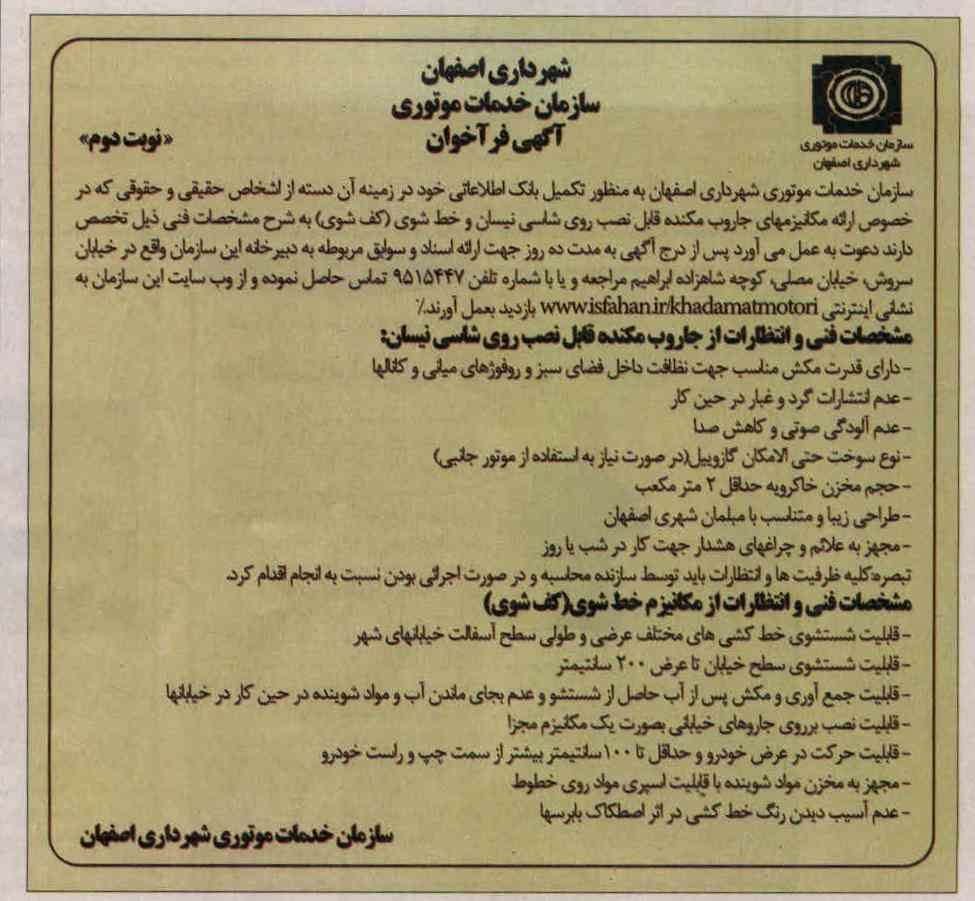 شهرداری اصفهان
سازمان خدمات موتوری
آگهی فرآخوان
«نوبت دوم»
سازمان خدمات موتوری
شهرداری اصفهان
سازمان خدمات موتوری شهرداری اصفهان به منظور تکمیل بانک اطلاعاتی خود در زمینه آن دسته از اشخاص حقیقی و حقوقی که در
خصوص ارائه مکانیزمهای جاروب مکنده قابل نصب روی شاسی نیسان و خط شوی (کف شوی) به شرح مشخصات فنی ذیل تخصص
دارند دعوت به عمل می آورد پس از درج آگهی به مدت ده روز جهت ارائه اسناد و سوابق مربوطه به دبیرخانه این سازمان واقع در خیابان
سروش، خیابان مصلی، کوچه شاهزاده ابراهیم مراجعه و یا با شماره تلفن ۹۵۱۵۴۴۷ تماس حاصل نموده و از وب سایت این سازمان به
نشانی اینترنتی www.isfahan.ir/khadamatmotori بازدید بعمل آورند./
مشخصات فنی و انتظارات از جاروب مکنده قابل نصب روی شاسی نیسان:
-دارای قدرت مکش مناسب جهت نظافت داخل فضای سبز و روفوژهای میانی و کانالها
-عدم انتشارات گرد و غبار در حین کار
-عدم آلودگی صوتی و کاهش صدا
-نوع سوخت حتی الامکان گازوییل(در صورت نیاز به استفاده از موتور جانبی)
-حجم مخزن خاکروبه حداقل ۲ متر مکعب
-طراحی زیبا و متناسب با مبلمان شهری اصفهان
-مجهز به علائم و چراغهای هشدار جهت کار در شب یا روز
تبصره:کلیه ظرفیت ها و انتظارات باید توسط سازنده محاسبه و در صورت اجرائی بودن نسبت به انجام اقدام کرد.
مشخصات فنی و انتظارات از مکانیزم خط شوی(کف شوی)
-قابلیت شستشوی خط کشی های مختلف عرضی و طولی سطح آسفالت خیابانهای شهر
-قابلیت شستشوی سطح خیابان تا عرض ۲۰۰ سانتیمتر
-قابلیت جمع آوری و مکش پس از آب حاصل از شستشو و عدم بجای ماندن آب و مواد شوینده در حین کار در خیابانها
-قابلیت نصب برروی جاروهای خیابانی بصورت یک مکانیزم مجزا
-قابلیت حرکت در عرض خودرو و حداقل تا ۱۰۰سانتیمتر بیشتر از سمت چپ و راست خودرو
-مجهز به مخزن مواد شوینده با قابلیت اسپری مواد روی خطوط
-عدم آسیب دیدن رنگ خط کشی در اثر اصطکاک بابرسها
سازمان خدمات موتوری شهرداری اصفهان